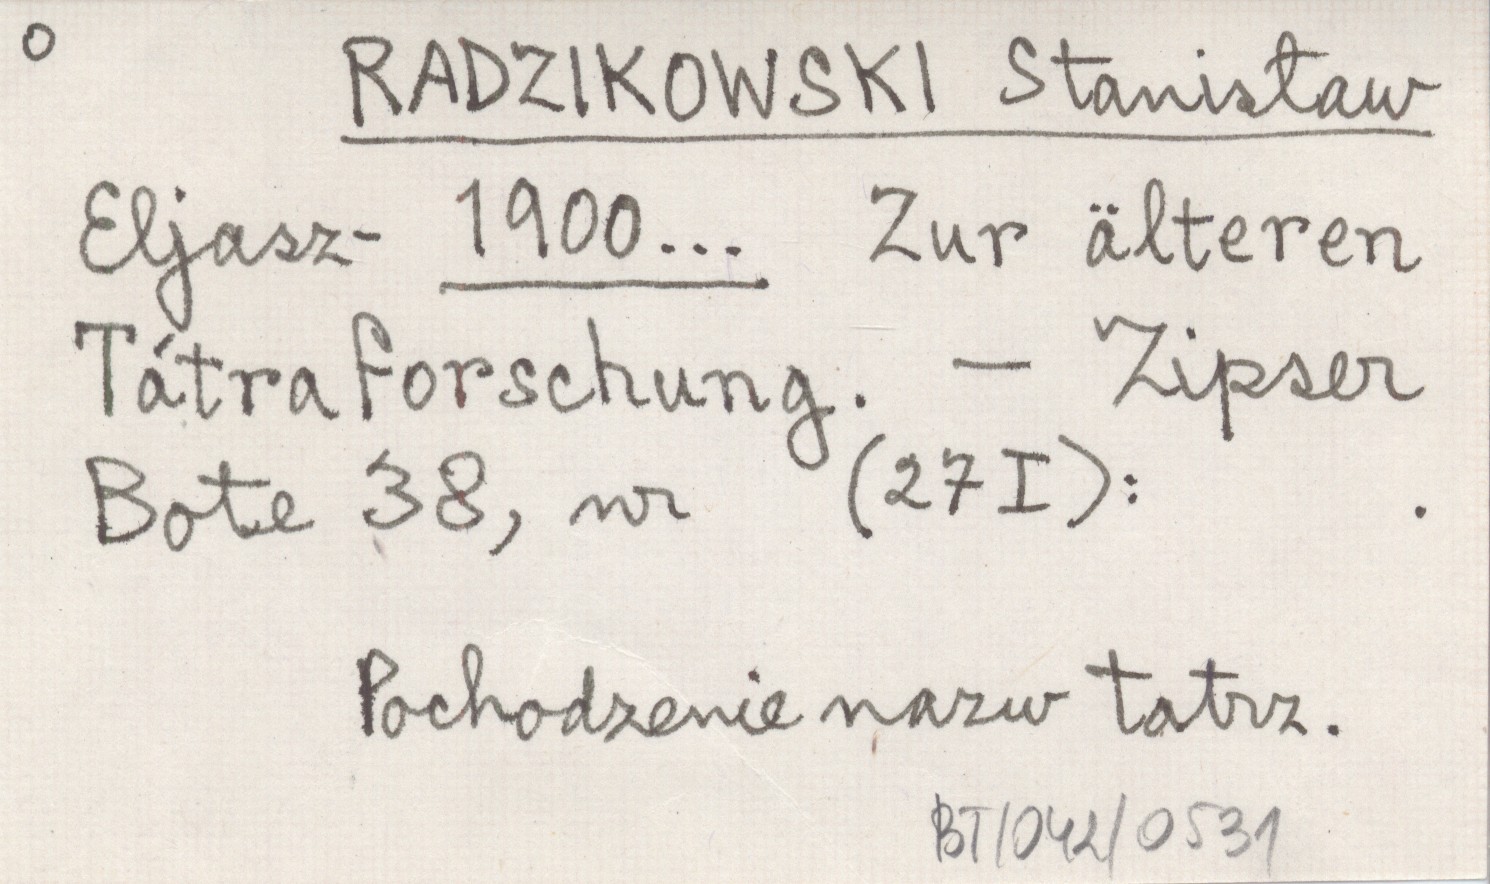 o
RADZIKOWSKI Stanisław
Eljasz- 1900... Zur älteren
Tátraforschung. — Zipser
Bote 38, nr (27 I): .
Pochodzenie nazw tatrz.
BT/042/0531